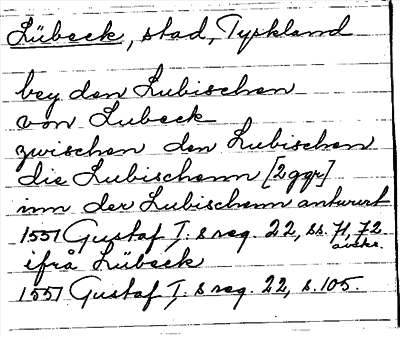 Lübeck, stad, Tyskland
bey den Lubischen
von Lubeck
zwischen den Lubischen
die Lubischenn [2ggr]
inn der Lubischenn antwurt
1551 Gustaf I:s reg. 22, ss. 71, 72
avskr.
ifrå Lübeck
1551 Gustaf I:s reg. 22, s. 105.